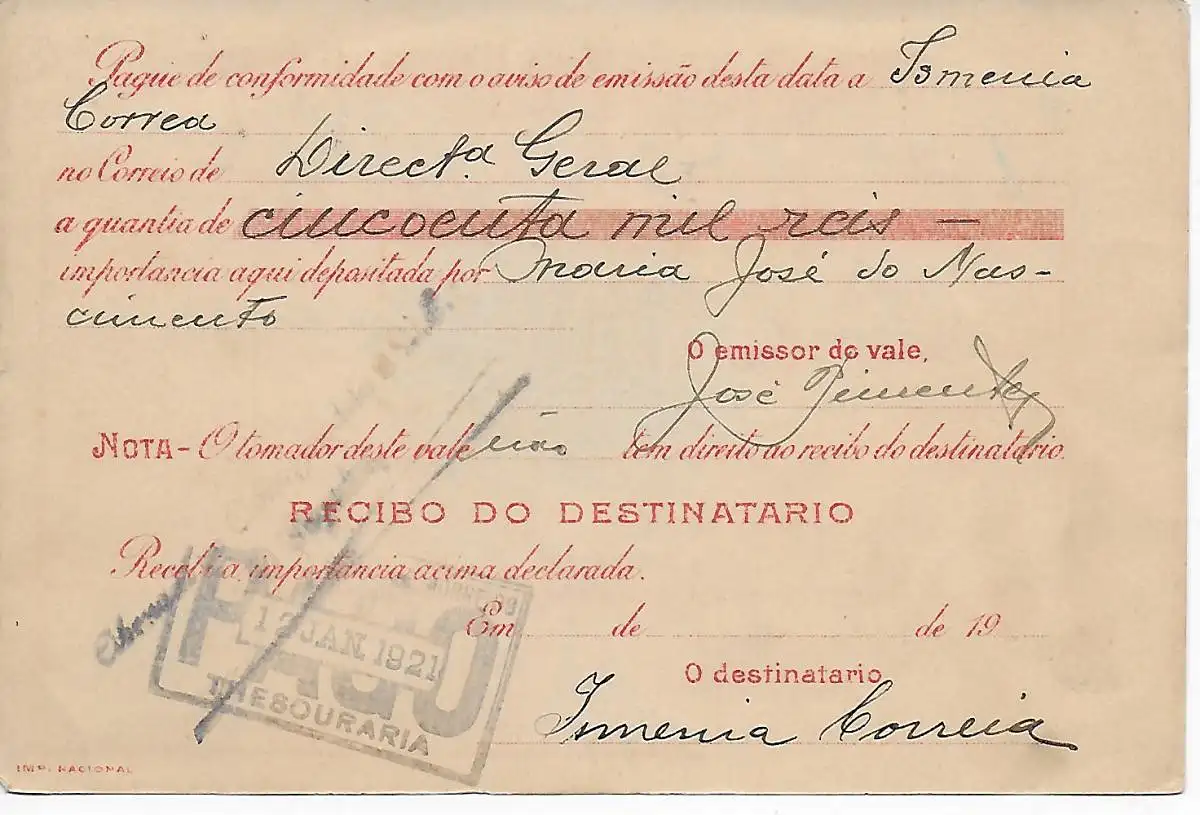 Pague de conformidade com o aviso de emissão desta data a Ismenia
Correa
no Correio de Direct.ª Geral
a quantia de cincoenta mil reis —
importancia aqui depositada por Maria José do Nas-
cimento
O emissor do vale,
José Pimentel
NOTA - O tomador deste vale não tem direito ao recibo do destinatario.
RECIBO DO DESTINATARIO
Recebi a importancia acima declarada.
Em de de 19
PAGO
13 JAN. 1921
THESOURARIA
O destinatario
Ismenia Correia
IMP. NACIONAL